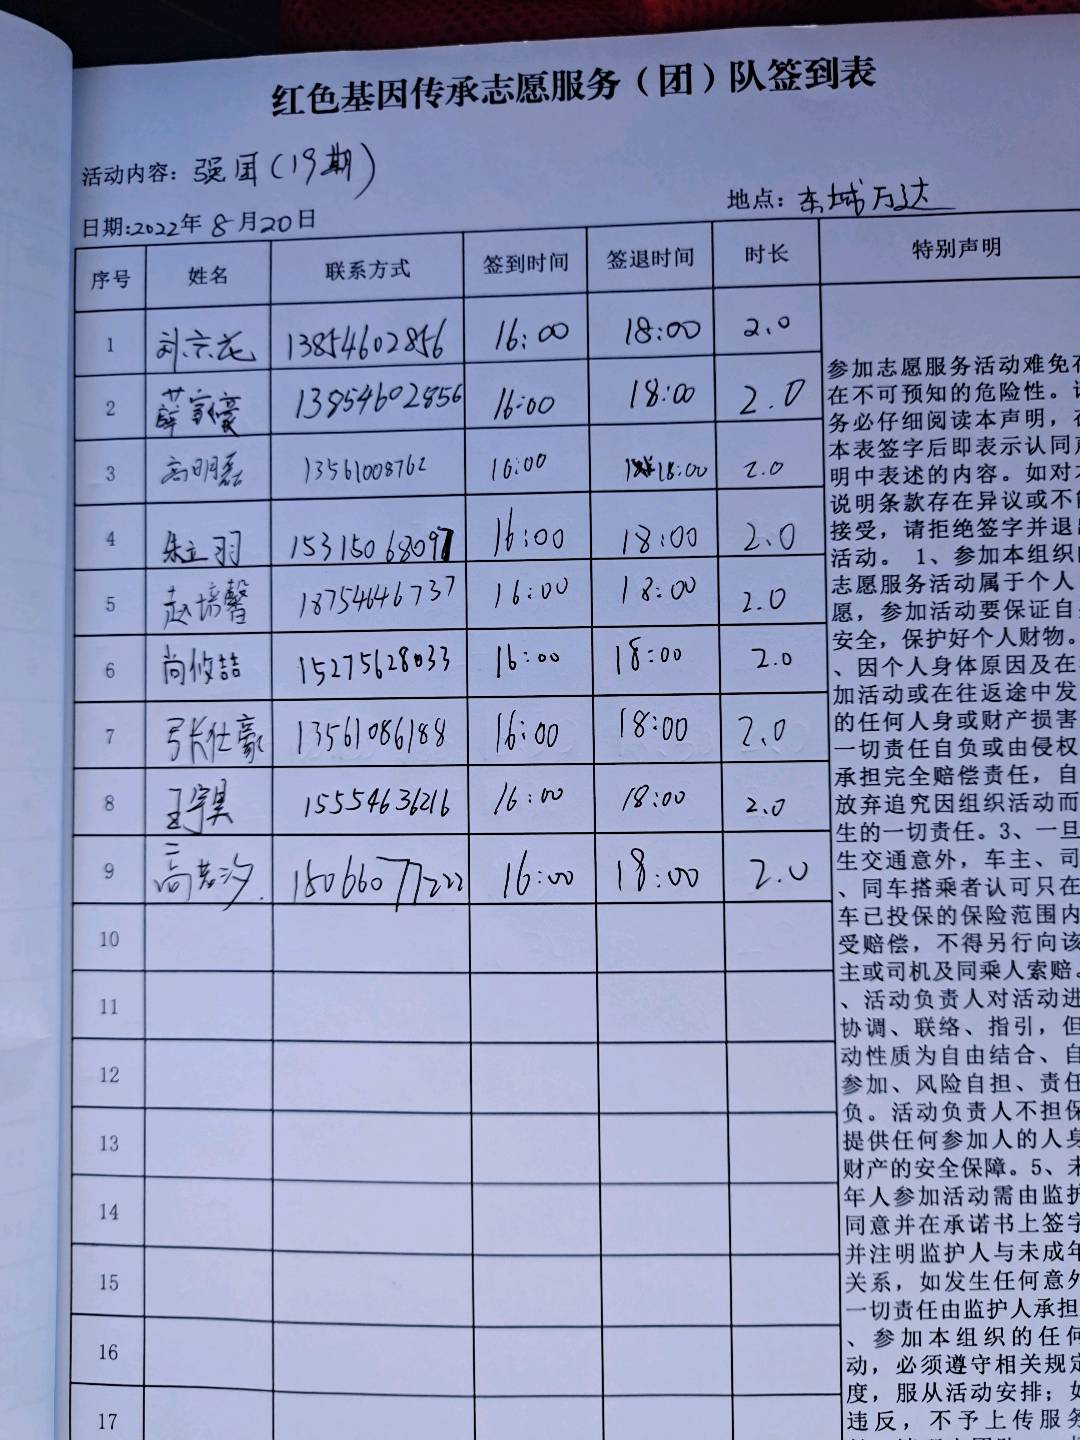 红色基因传承志愿服务（团）队签到表
活动内容：强国（19期）
日期:2022年8月20日
地点：东城万达
序号 姓名 联系方式 签到时间 签退时间 时长 特别声明
1 刘宗花 13854602856 16:00 18:00 2.0
2 薛家豪 13854602856 16:00 18:00 2.0
3 高明磊 13561008762 16:00 18:00 2.0
4 朱立羽 15315068097 16:00 18:00 2.0
5 赵培馨 18754646737 16:00 18:00 2.0
6 尚攸喆 15275628033 16:00 18:00 2.0
7 张仕豪 13561086188 16:00 18:00 2.0
8 王宇昊 15554636216 16:00 18:00 2.0
9 高若汐 15066077222 16:00 18:00 2.0
10
11
12
13
14
15
16
17
参加志愿服务活动难免存
在不可预知的危险性。请
务必仔细阅读本声明，在
本表签字后即表示认同声
明中表述的内容。如对本
说明条款存在异议或不能
接受，请拒绝签字并退出
活动。 1、参加本组织的
志愿服务活动属于个人自
愿，参加活动要保证自身
安全，保护好个人财物。
、因个人身体原因及在参
加活动或在往返途中发生
的任何人身或财产损害，
一切责任自负或由侵权人
承担完全赔偿责任，自愿
放弃追究因组织活动而产
生的一切责任。3、一旦发
生交通意外，车主、司机
、同车搭乘者认可只在该
车已投保的保险范围内接
受赔偿，不得另行向该车
主或司机及同乘人索赔。
、活动负责人对活动进行
协调、联络、指引，但活
动性质为自由结合、自愿
参加、风险自担、责任自
负。活动负责人不担保或
提供任何参加人的人身、
财产的安全保障。5、未成
年人参加活动需由监护人
同意并在承诺书上签字，
并注明监护人与未成年人
关系，如发生任何意外，
一切责任由监护人承担。
、参加本组织的任何活
动，必须遵守相关规定制
度，服从活动安排；如有
违反，不予上传服务